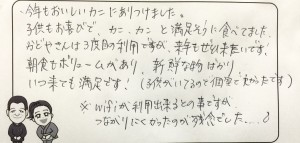 今年もおいしいカニにありつけました。
子供もお喜びで、カニ、カニと満足そうに食べてました
おどやさんは3度目の利用ですが、来年もぜひ来たいです!
朝食もボリュームがあり、新鮮な物ばかり
いつ来ても満足です!(子供がいてるので個室で良かったです)
※wifiが利用出来るとの事ですが
つながりにくかったのが残念でした....